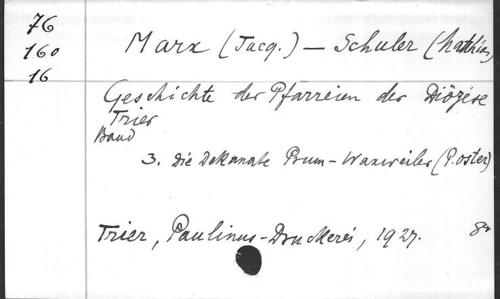 76
160
16
Marx (Jacq.) – Schuler (Matthias)
Geschichte der Pfarreien der Diözese
Trier
Band
3. Die Dekanate Prum-Waxweiler (P. oster)
Trier, Paulinus-Druckerei, 1927. 8º